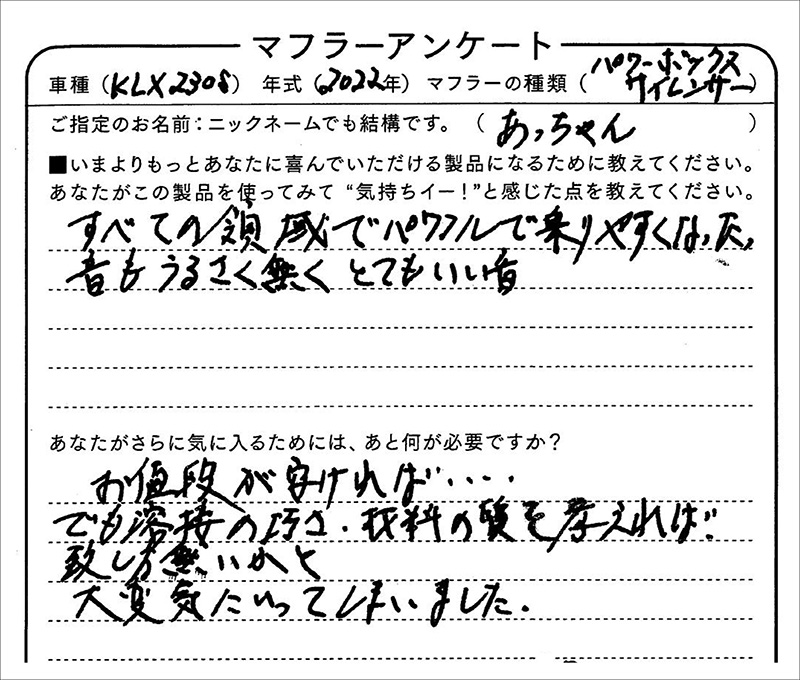 マフラーアンケート
車種（KLX230S） 年式（2022年） マフラーの種類（パワーボックスサイレンサー）
ご指定のお名前：ニックネームでも結構です。（ あっちゃん ）
■いまよりもっとあなたに喜んでいただける製品になるために教えてください。
あなたがこの製品を使ってみて“気持ちイー！”と感じた点を教えてください。
すべての領域でパワフルで乗りやすくなった。
音もうるさく無く とてもいい音
あなたがさらに気に入るためには、あと何が必要ですか？
お値段が安ければ・・・・
でも溶接の巧さ、材料の質を考えれば
致し方無いかと
大変気にいってしまいました。